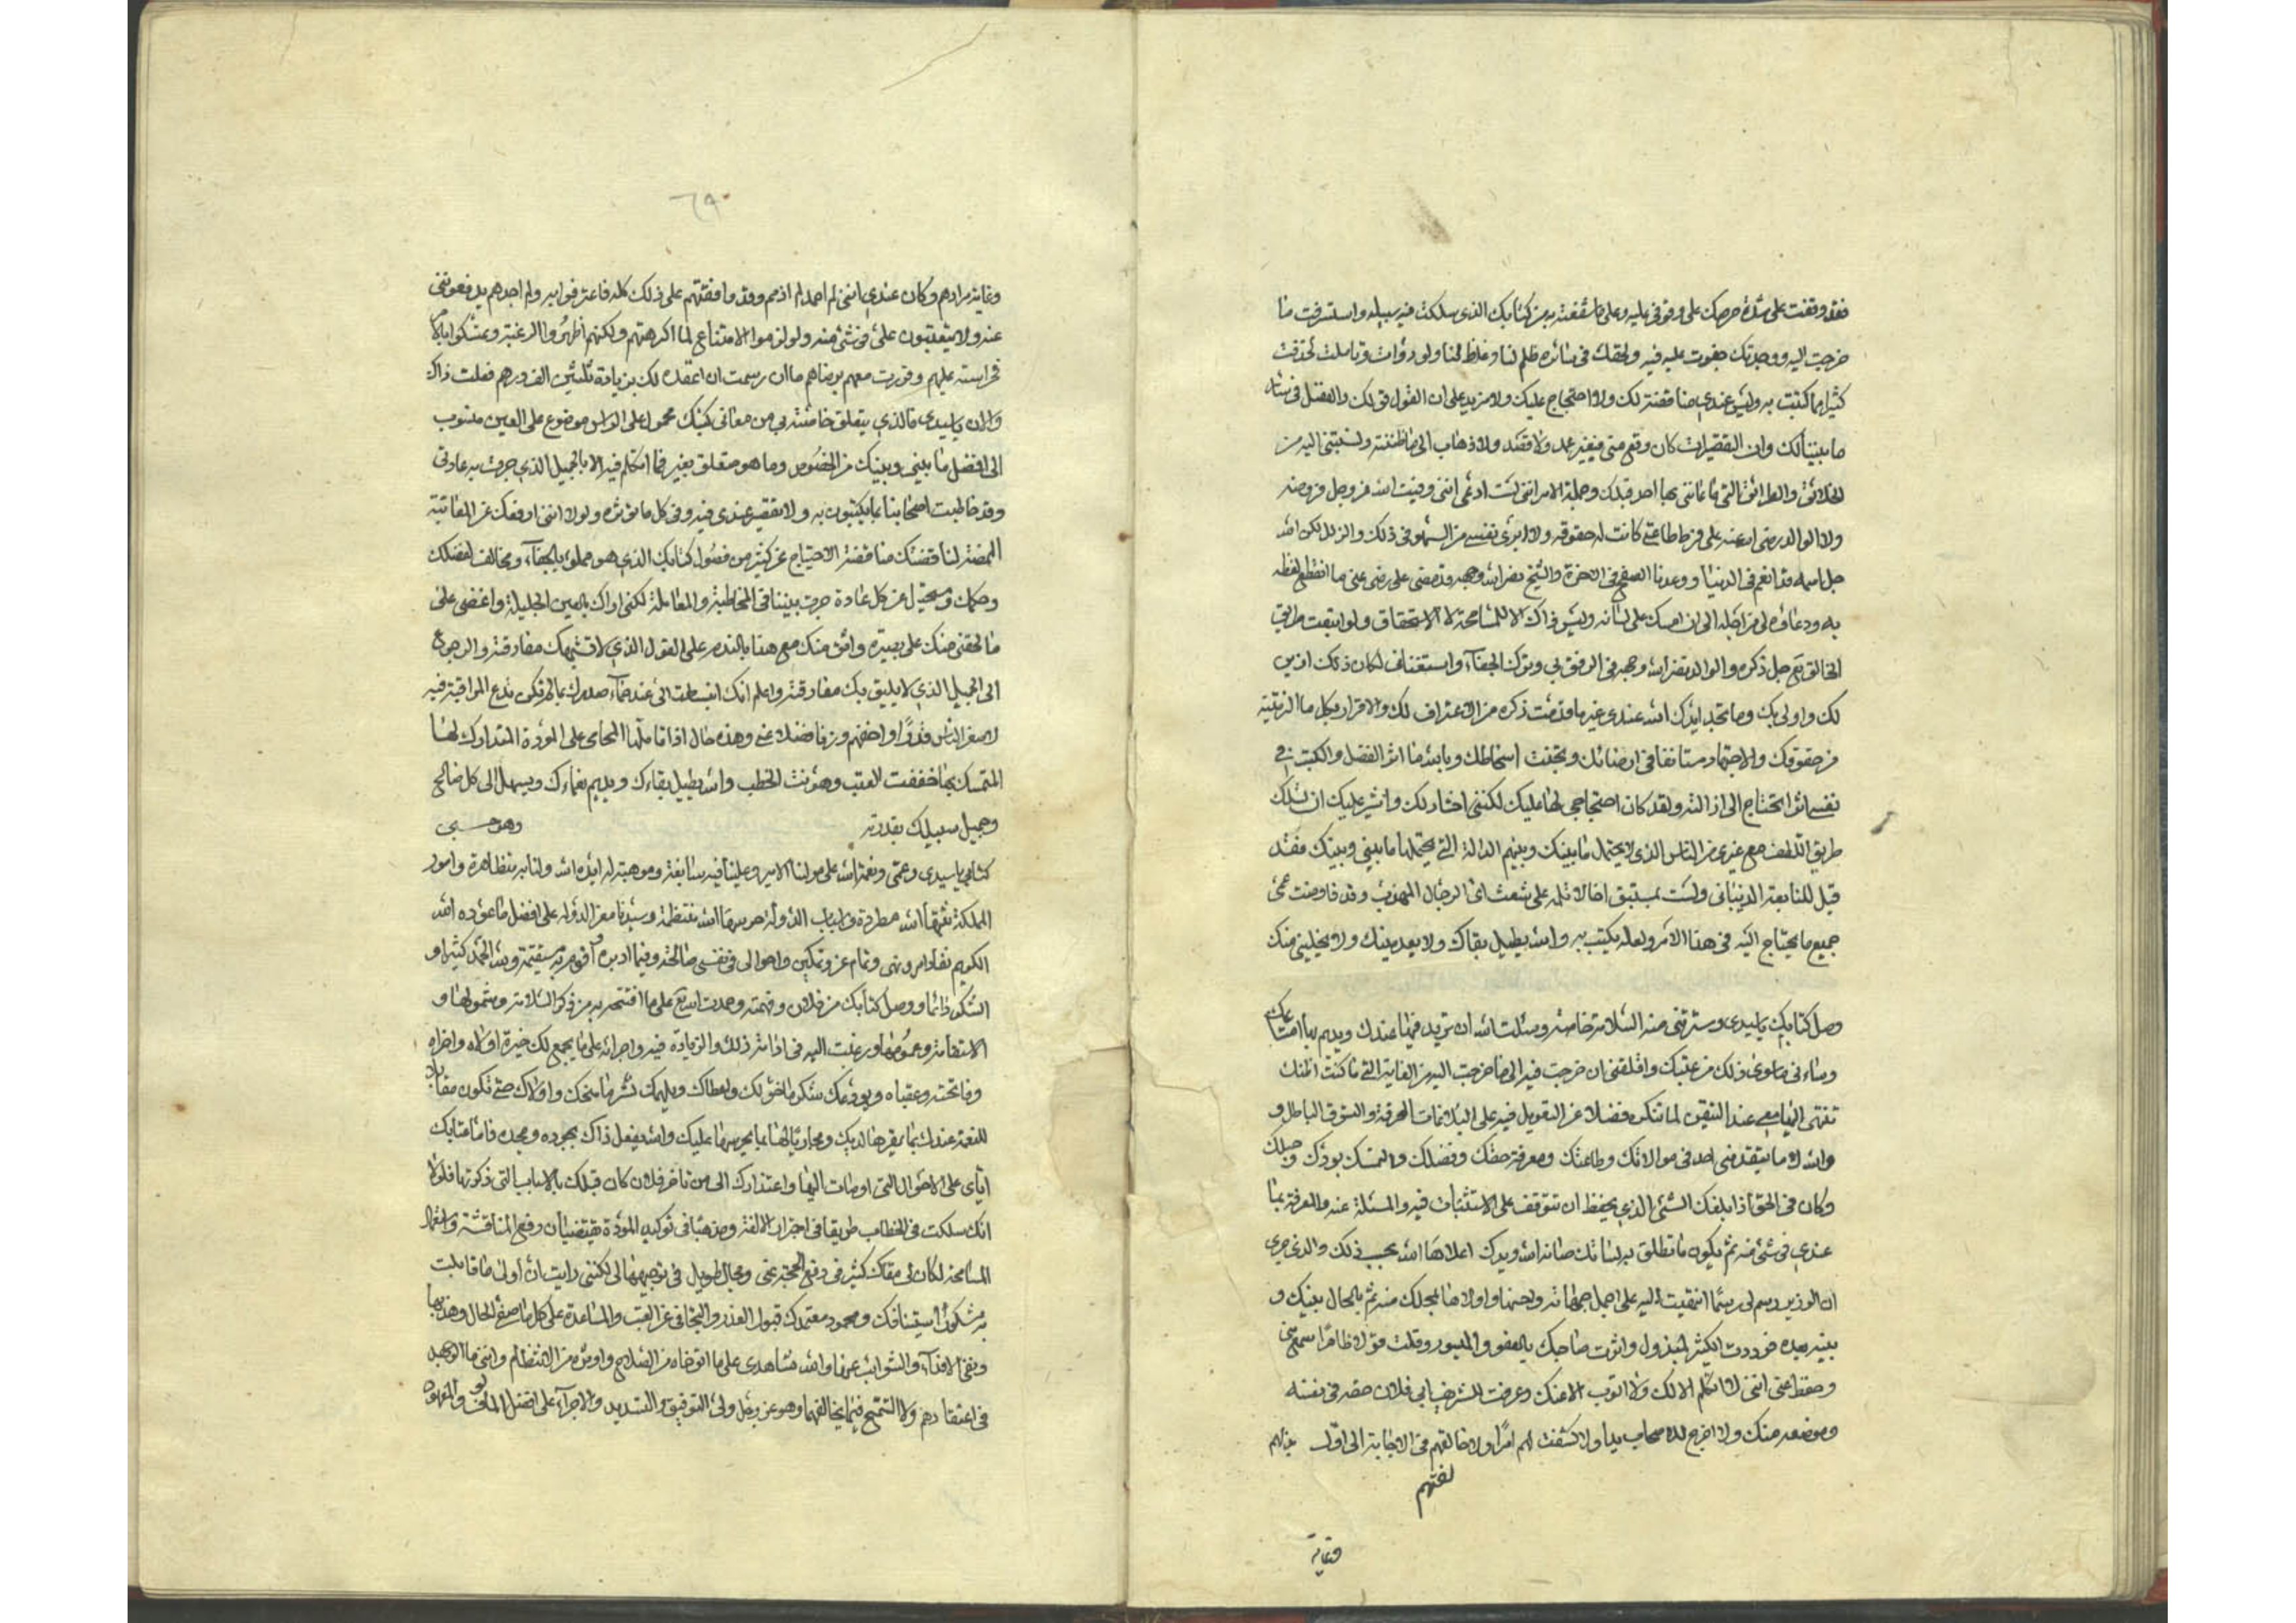 فقد وقفت على شدة حرصك على وقوفي عليه وعلى ما شفعته به من كتابك الذي سلكت فيه سبيله واستسرفت ما
خرجت اليه ووجدتك جفوت عليه فيه ولحقك في سائره ظلم لنا وغلظ منا ولو رواٮ وتاملت لحذفت
كثيرا مما كتبت به وليس عندي مناقضة لك ولا احتجاج عليك ولا مزيد على ان القول قولك والفضل في سائر
ما بيننا لك وان التقصير ان كان وقع مني فبغير عمد ولا قصد ولا ذهاب الى ما ظننته ونسبتني اليه من
الخلائق والطرائق التي ما عابني بها احد قبلك وجملة الامر انني لست ادعي انني وفيت الله عز وجل فروضه
ولا الوالد رضي الله عنه على فرط طاعتي كانت له حقوقه ولا ابرئ نفسي من السهو في ذلك والزلل لكن الله
جل اسمه قد انعم في الدنيا ووعدنا الصفح في الاخرة والشيخ نضر الله وجهه قد مضى على رضى عني ما انقطع لفظه
به ودعاؤه لي من اجله الى ان امسك على لسانه وليس ذاك الا للمسامحة لا الاستحقاق ولو اتبعت طريق
الخالق تع جل ذكره والوالد نضر الله وجهه في الرفق بي وترك الجفاء واستغناف لكان ذلك ازين
لك واولى بك وما تجد ايدك الله عندي غير ما قدمت ذكره من الاعتراف لك والاقرار بكل ما الزمتنيه
من حقوقك والاجتهاد مستانفا في ارضائك وتجنب اسخاطك وبالله ما اثر الفضل والكبت في
نفسي اثرا تحتاج الى ازالته ولقد كان احتجاجي لها عليك لكنني اختار لك واشير عليك ان تسلك
طريق التلطف مع غيري من الناس الذي لا يحتمل ما بينك وبينهم الدالة التي يحتملها ما بيني وبينك فقد
قيل للنابغة الذبياني ولست بمستبق اخا لا تلمه على شعث اي الرجال المهذب وقد فاوضت عمي
جميع ما يحتاج اليه في هذا الامر ولعله يكتب به والله يطيل بقاك ولا يعدمنيك ولا يخليني منك
وصل كتابك يا سيدي وسرتني منه السلامة خاصة وسئلت الله ان تزيد فيما عندك ويديم بها امتاعك
وساءني ما سوى ذلك من عتبك واقلقني ان خرجت فيه الى ما خرجت اليه من الغاية التي ما كنت اظنك
تنتهي اليها معي عند التيقن لما تنكر فضلا عن التعويل فيه على البلاغات المحرفة والسوق الباطل و
والله لا ما يتقدمني احد في موالاتك وطاعتك ومعرفة حقك وفضلك والتمسك بودك وحبلك
وكان في الحق اذا بلغك الشئ الذي يحفظ ان تتوقف على الاستثبات فيه والمسئلة عنه والمعرفة بما
عندي في شئ منه ثم يكون ما تطلق به لسانك صانه الله ويدك اعلاها الله بحسب ذلك والذي جرى
ان الوزير رسم لي رسما انتهيت اليه على اجمل جهاته واحسنها واولاها بمحلك منه ثم بالحال بينك و
بينه بعده فرددت الكثير المبذول واثرت صاحبك بالعفو والميسور وقلت قولا ظاهرا سمع مني
وحفظ عني انني لا اتكلم الا لك ولا انوب الا عنك وعرفت الشريف ابي فلان حقه في نفسه
وموضعه منك ولا اخرج للاصحاب بها ولا كشفت لهم امرا ولا خالفتهم في الاجابة الى اول بذلهم
لفتهم
وغاية
٦٩
وغاية مرادهم وكان عندي انني لم احمد لم اذمم وقد وافقتهم على ذلك كله فاعترفوا به ولم اجدهم يدفعونني
عنه ولا يتعتبون علي في شئ منه ولو لزموا الامتناع لما اكرهتهم ولكنهم اظهروا الرغبة وعشكوا بها
فحراسته عليهم وقررت معهم برضاهم ما ان رسمت ان اعقده لك بزيادة ثلثين الف درهم فعلت ذاك
والان يا سيدي فالذي يتعلق خاصة بي من معاني كتبك محمول على الراس موضوع على العين منسوب
الى افضل ما بيني وبينك من الخصوص وما هو متعلق بغيري فما اتكلم فيه الا بالجميل الذي جرت به عادتي
وقد خاطبت اصحابنا بما يكتبون به ولا تقصير عندي فيه وفي كل ما تؤثره ولولا انني ارفعك عن المعاتبة
الممضة لناقضتك مناقضة الاحتجاج عن كثير من فصول كتابك الذي هو مملوء بالجفاء ومخالف لفضلك
وحكمك ومستحيل عن كل عادة جرت بيننا في المخاطبة والمعاملة لكني اراك بالعين الجليلة واغضي على
ما لحقني منك على بصيرة واثق منك مع هذا بالندم على القول الذي لا يشبهك مفارقته والرجوع
الى الجميل الذي لا يليق بك مفارقته واعلم انك انبسطت الي عند ضاء صدرك بما لم تكن تدع المراقبة فيه
لاصغر الناس قدرا واخفهم وزنا فضلا عني وهذه حال اذا تاملها المحامي على المودة المتدارك لهنا
المتمسك بها خففت العتب وهونت الخطب والله يطيل بقاءك ويديم نعماءك ويسهل الى كل صالح
وجميل سبيلك بقدرته وهو حسبي
كتابي يا سيدي وعمي ونعم الله على مولنا الامير وعلينا فيه سابغة وموهبته له ايده الله ولنا به متظاهرة وامور
المملكة ثبتها الله مطردة واسباب الدولة حرسها الله منتظمة وسيدنا معز الدولة على افضل ما عوده الله
الكريم نفاذ امر ونهي وتمام عز وتمكين واحوالي في نفسي صالحة وفيما ادبره واقوم به مستقيمة ولله الحمد كثيرا و
الشكر دائما ووصل كتابك من فلان وفهمته وحمدت الله تع على ما افتتحته به من ذكر السلامة وشمولها و
الاستقامة وعمومها ورغبت اليه في ادامة ذلك والزيادة فيه واجرائه على ما يجمع لك خيرة اولاه واخراه
وفاتحته وعقباه ويوزعك شكر ما خولك واعطاك ويلهمك نشر ما منحك واولاك حتى تكون مقابلا
للنعمة عندك بما يقرها لديك ومجاريا لها بما يحرسها عليك والله يفعل ذاك بجوده ومجده فاما عتابك
اياي على الاحوال التي اومات اليها واعتذارك الي من تاخر فلان كان قبلك بالاسباب التي ذكرتها فلولا
انك سلكت في الخطاب طريقا في اجرار الالفة ومذهبا في توكيد المودة يقتضيان رفع المناقشة واستعمال
المسامحة لكان لي مقال كثير في دفع الحجة عني ومجال طويل في توجيهها لي لكنني رايت ان اولى ما قابلت
به مشكور استينافك ومحمود معتمدك قبول العذر والتجافي عن العتب والمساعدة على كل ما اصفى الحال وهذبها
ونفى الاقذاء والشوائب عنها والله شاهدي على ما اتوخاه من الصلاح واوثره من الانتظام وانني ما ال جهد
في اعتقادهم ولا التسمح فيما يخالفهما وهو عز وجل ولي التوفيق والتسديد والاجراء على افضل المالوف والمعهود